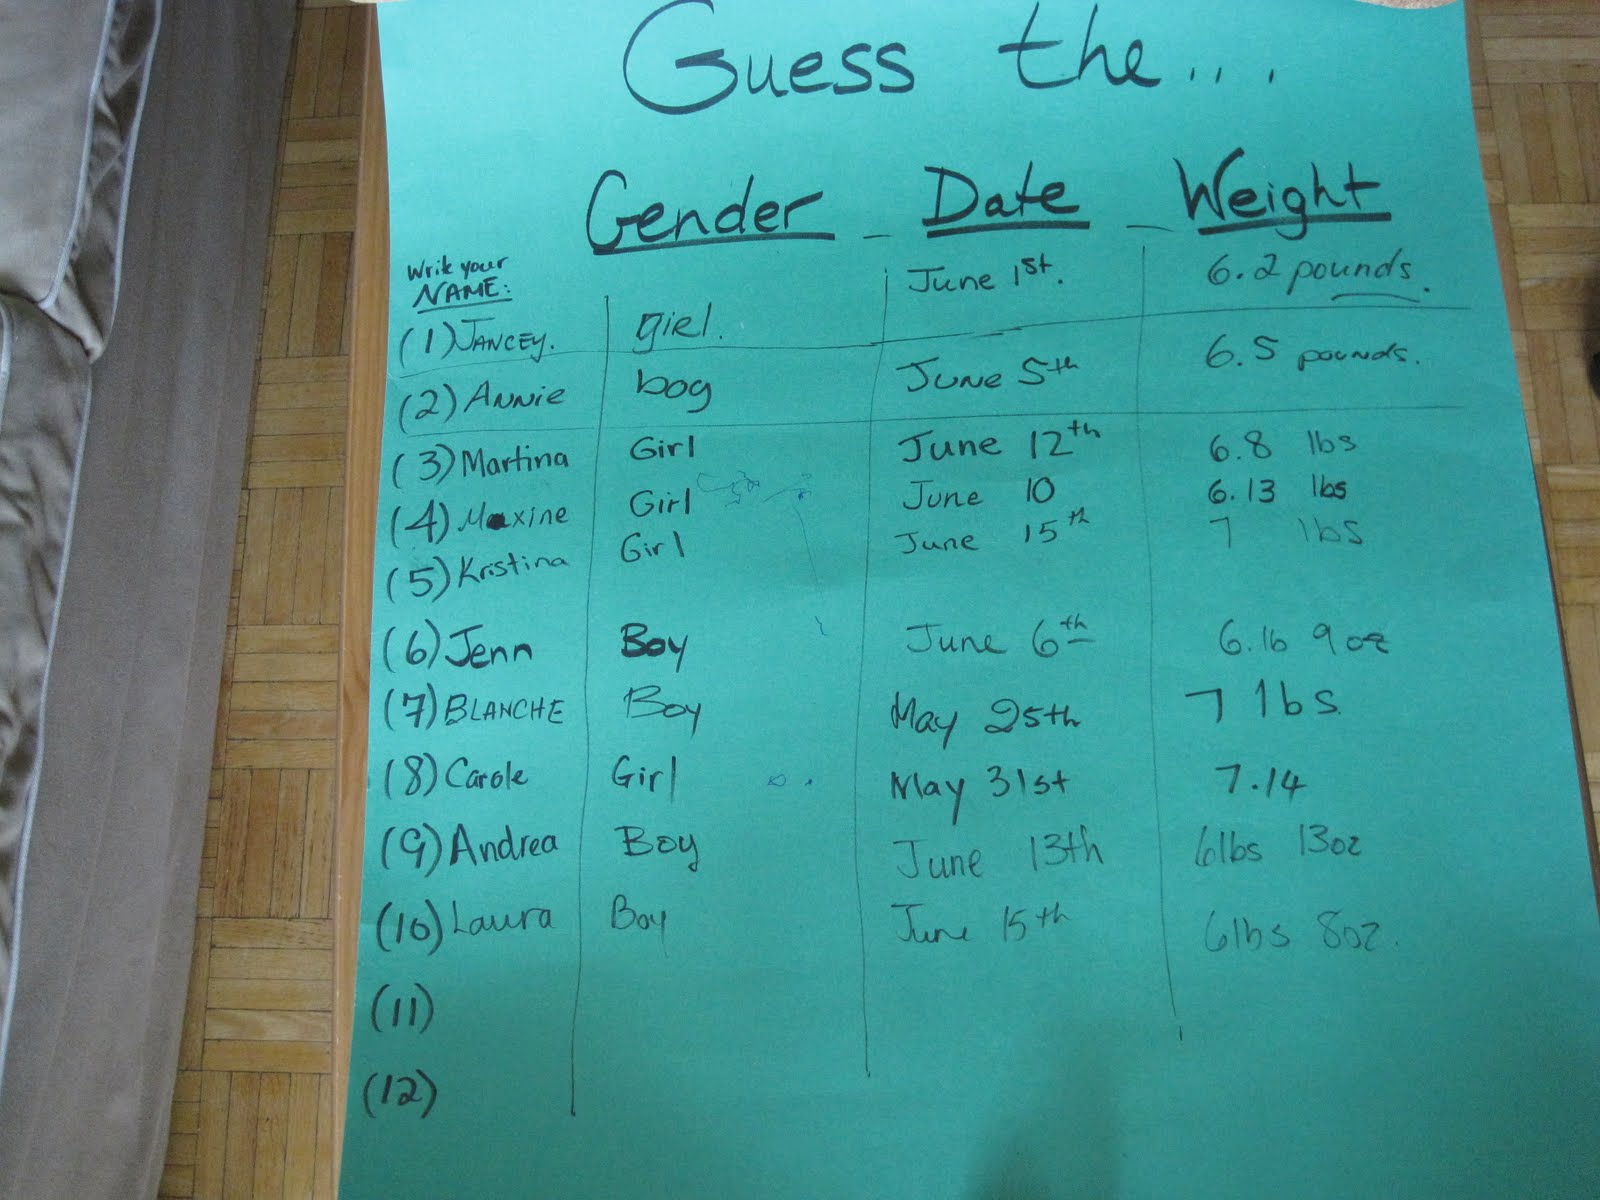 Guess the...
Gender - Date - Weight
Write your
NAME:
(1) JANCEY. girl. June 1st. 6.2 pounds.
(2) ANNIE boy June 5th 6.5 pounds.
(3) Martina Girl June 12th 6.8 lbs
(4) Maxine Girl June 10 6.13 lbs
(5) Kristina Girl June 15th 7 lbs
(6) Jenn Boy June 6th 6.lb 9oz
(7) BLANCHE Boy May 25th 7 lbs
(8) Carole Girl May 31st 7.14
(9) Andrea Boy June 13th 6lbs 13oz
(10) Laura Boy June 15th 6lbs 8oz.
(11)
(12)